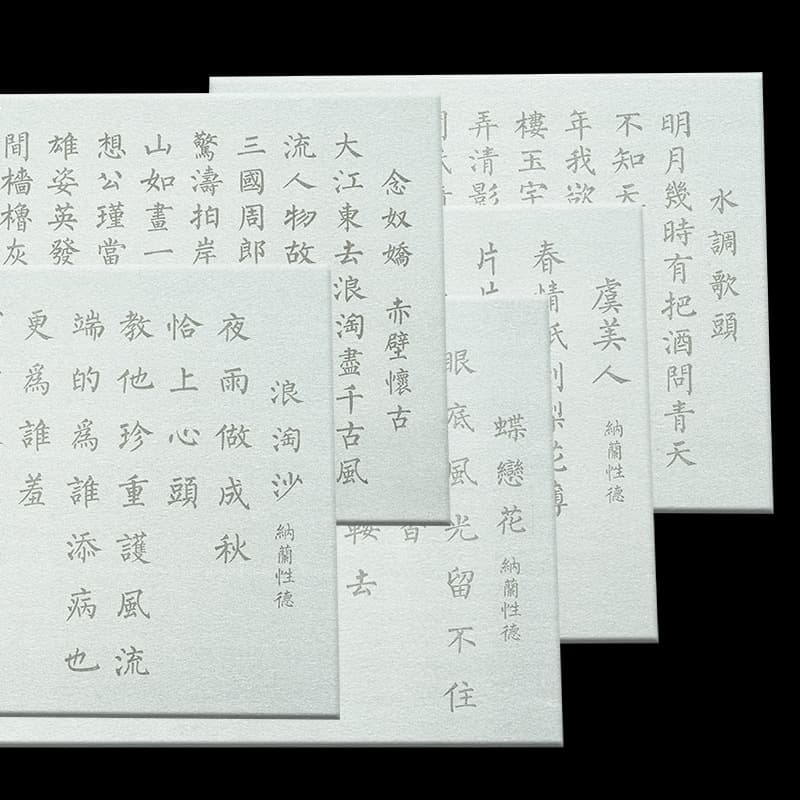 水調歌頭
明月幾時有把酒問青天
不知天
年我欲
樓玉宇
弄清影
念奴嬌 赤壁懷古
大江東去浪淘盡千古風
流人物故
三國周郎
驚濤拍岸
山如畫一
想公瑾當
雄姿英發
間檣櫓灰
虞美人 納蘭性德
春情祇到梨花薄
片片
蝶戀花 納蘭性德
眼底風光留不住
鞍去
浪淘沙 納蘭性德
夜雨做成秋
恰上心頭
教他珍重護風流
端的爲誰添病也
更爲誰羞